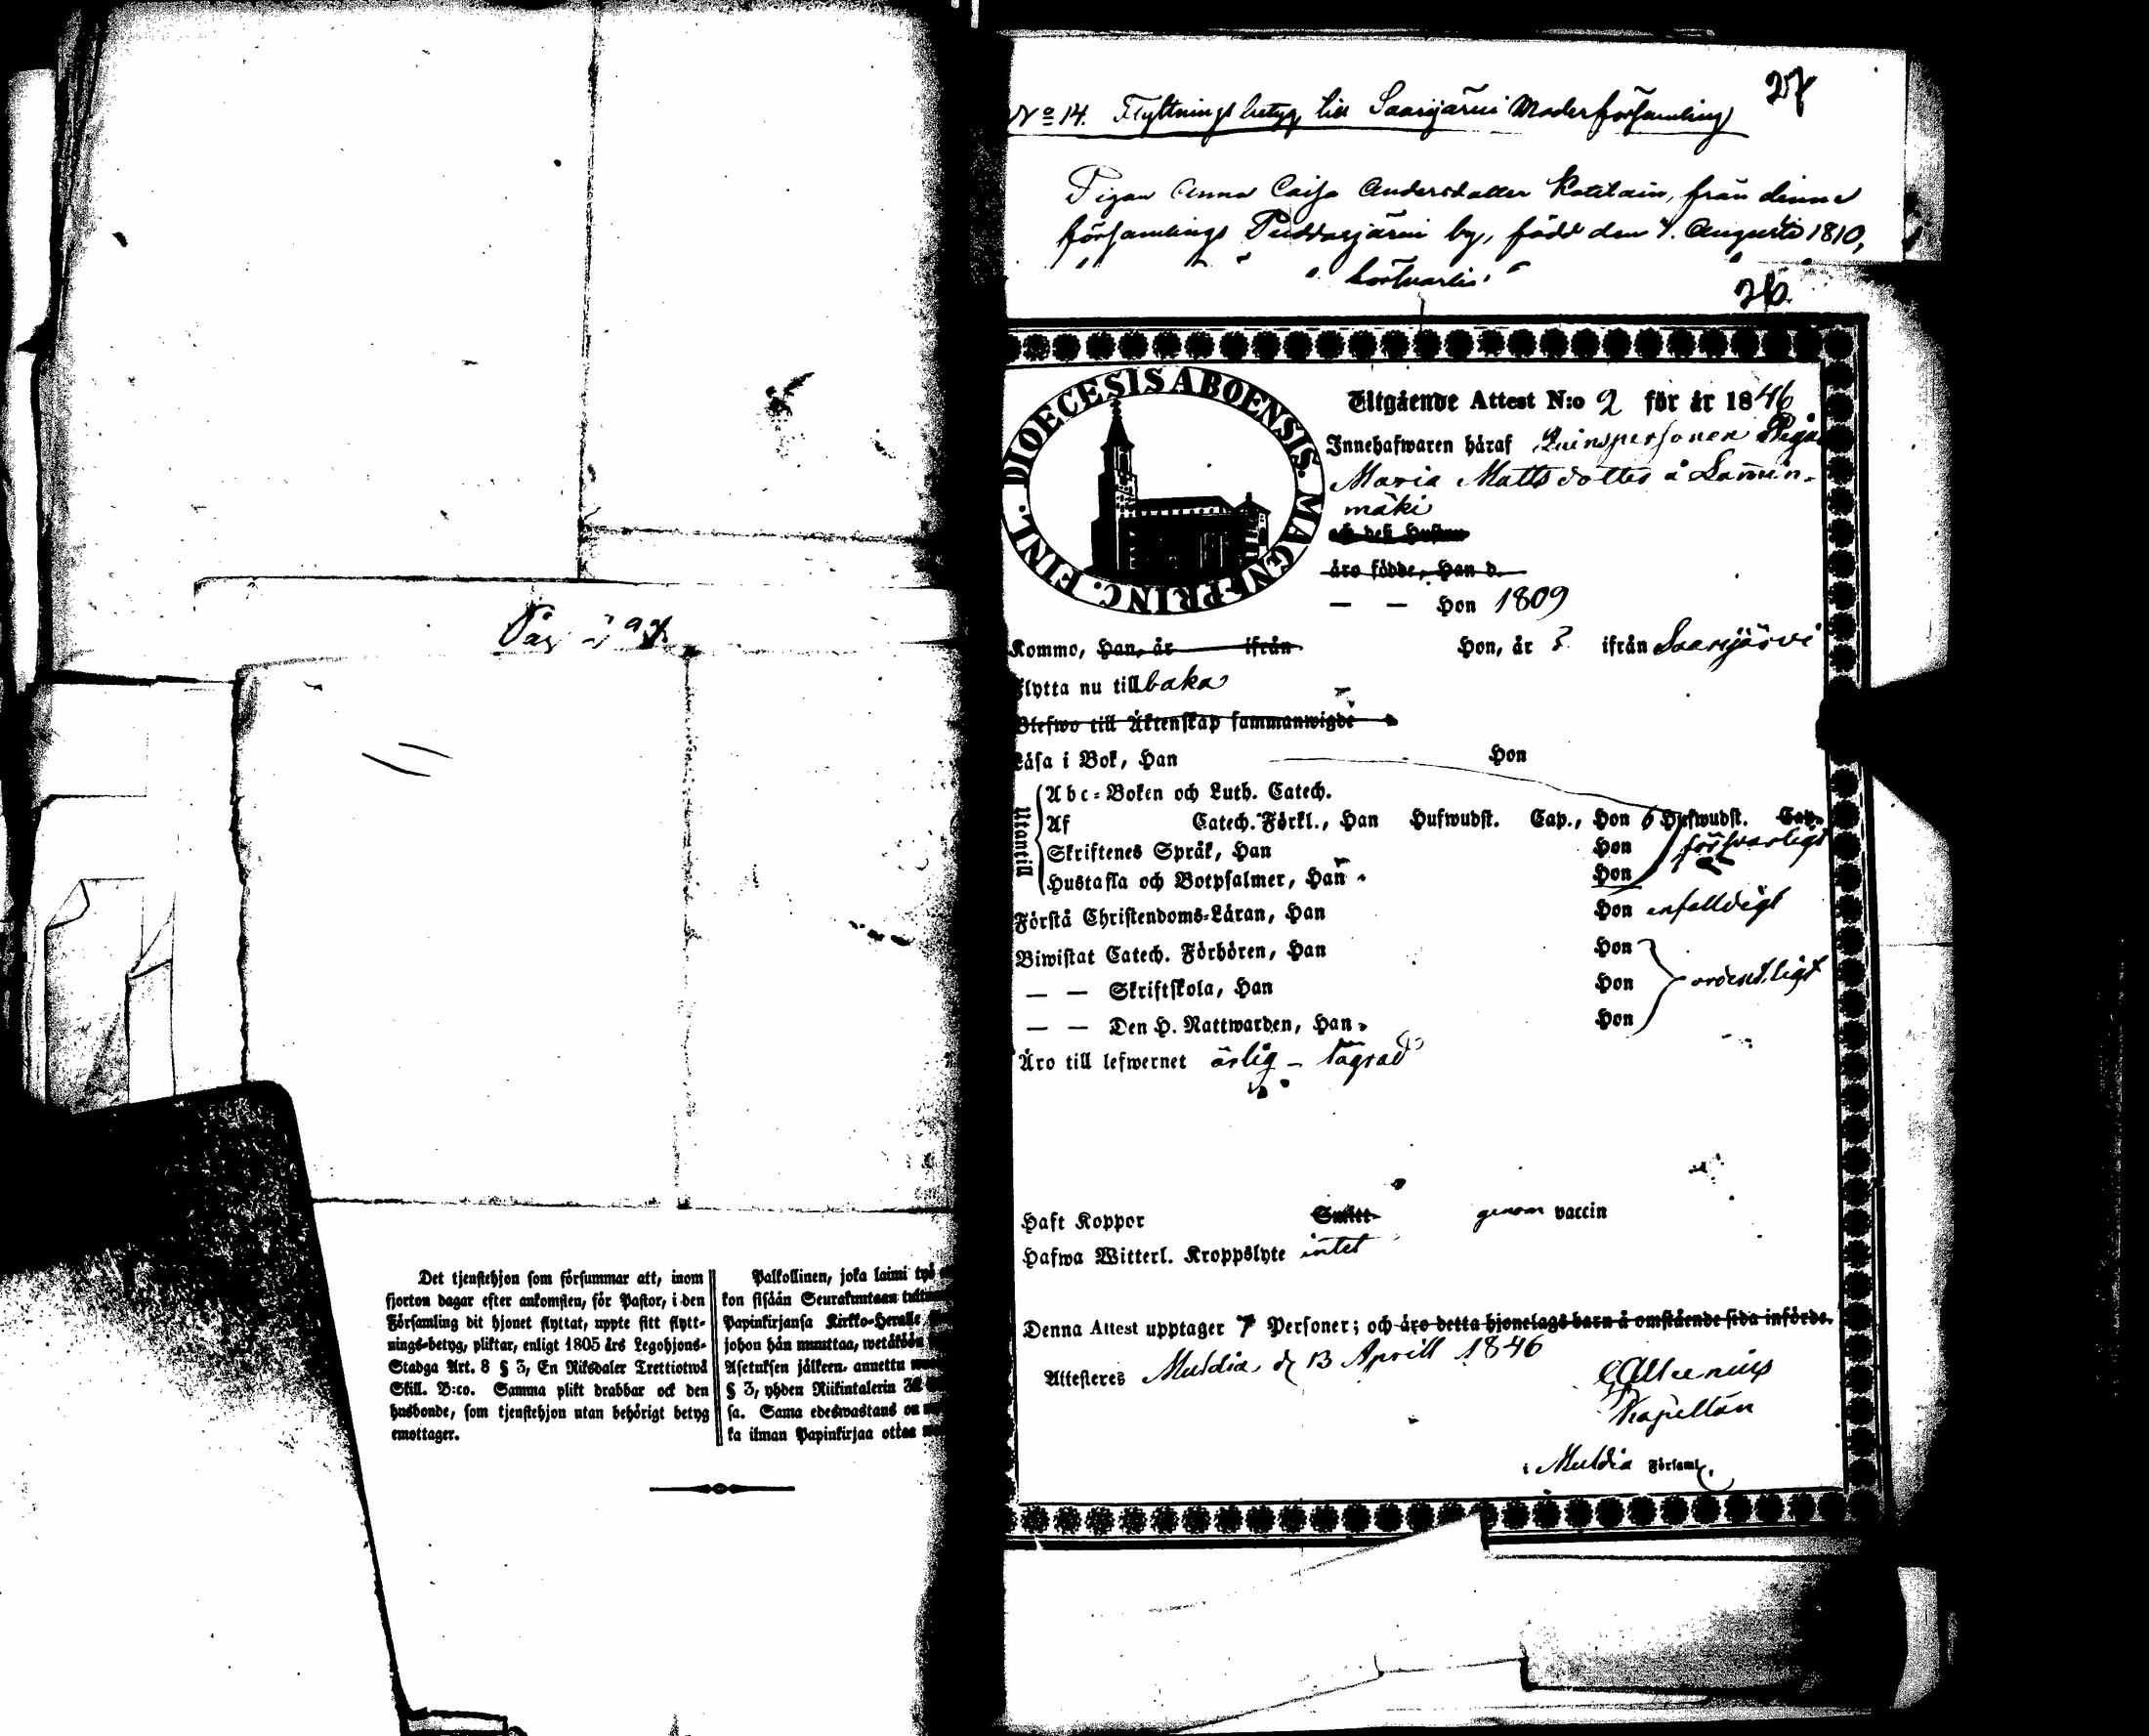 Pag. 297.
Det tjenstehjon som försummar att, inom
fjorton dagar efter ankomsten, för Pastor, i den
Församling dit hjonet flyttat, uppte sitt flytt-
nings-betyg, pliktar, enligt 1805 års Legohjons-
Stadga Art. 8 § 3, En Riksdaler Trettiotwå
Skill. B:co. Samma plikt drabbar ock den
husbonde, som tjenstehjon utan behörigt betyg
emottager.
Palkollinen, joka laimi
kon sisään Seurakuntaan
Papinkirjansa Kirkko-Herralle
johon hän muuttaa, wetäköön
Asetuksen jälkeen, annettu
§ 3, yhden Riikintalerin 32
sa. Sama edeswastaus on
ka ilman Papinkirjaa ottaa
27
No 14. Flyttningsbetyg till Saarijärvi Moderförsamling
Pigan Anna Caisa Andersdotter from denna
församlings by, född den 4. Augusti 1810,
26.
DIOECESIS ABOENSIS. MAGNI PRINC. FINL.
Utgående Attest N:o 2 för år 1846
Innehafwaren häraf Qvinspersonen Pigan
Maria Mattsdotter å Lamin-
mäki
och deß Hustru
äro födde, Han d.
— — Hon 1809
Kommo, Han, år ifrån Hon, år ? ifrån Saarijärvi
Flytta nu tillbaka
Blefwo till Äktenskap sammanwigde
Läsa i Bok, Han Hon
Utantill
Abc-Boken och Luth. Catech.
Af Catech. Förkl., Han Hufwudst. Cap., Hon 6 Hufwudst. Cap.
Skriftenes Språk, Han Hon försvarligt
Hustafla och Botpsalmer, Han Hon
Förstå Christendoms-Läran, Han Hon enfaldigt
Biwistat Catech. Förhören, Han Hon
— — Skriftskola, Han Hon ordentligt
— — Den H. Nattwarden, Han Hon
Äro till lefwernet ärlig
Haft Koppor Smitt genom vaccin
Hafwa Witterl. Kroppslyte intet
Denna Attest upptager 1 Personer; och äro detta hjonelags barn å omstående sida införde.
Attesteres Muldia, d 13 Aprill 1846
Kapellan
i Muldia Församl.